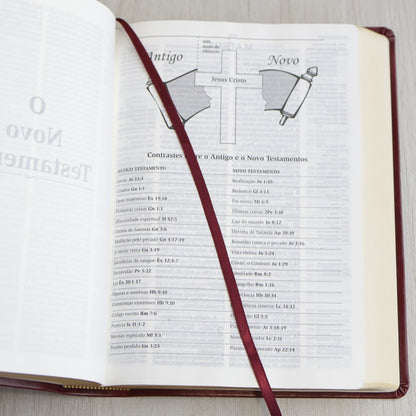 O
Novo
Testamento
400
anos de
silêncio
Antigo
Novo
Jesus Cristo
Contrastes entre o Antigo e o Novo Testamentos
ANTIGO TESTAMENTO
Js 23:5
Criador Gn 1:1
Ex 19:18
coisas Gn 1:1
espiritual Sl 82:5
de Satanás Gn 3:6
Maldição pelo pecado Gn 3:17-19
A morte reina Gn 3:19
Sacrifícios de sangue Ex 12:3-7
Escravidão Pv 5:22
Lei Ex 20:1-17
Figuras e sombras Hb 9:10
Cerimônias exteriores Hb 9:10
Código escrito Rm 7:6
Profecia Is 11:1-2
Messias esperado Ml 3:1
Paraíso perdido Gn 3:23
NOVO TESTAMENTO
Realização Jo 1:45
Redentor Gl 3:13
Pai nosso Mt 6:9
Últimas coisas 2Pe 3:10
Luz do mundo Jo 8:12
Derrota de Satanás Ap 20:10
Remédio contra o pecado Jo 3:16
Vida eterna Jo 5:24
Cristo, o Cordeiro Jo 1:29
Rm 8:2
Rm 1:16
Hb 10:34
interior Lc 24:32
Gl 3:5
At 3:18-19
Lc 2:11
Ap 22:14